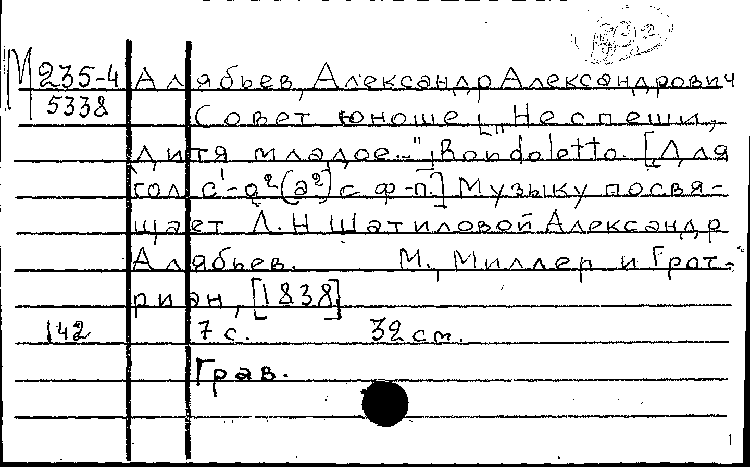 М 235-4 Алябьев, Александр Александрович
5338 Совет юноше. [„Не спеши,
дитя младое..."] Rondoletto. [Для
гол. c¹-g²(a²) с ф-п.] Музыку посвя-
щает Л. Н Шатиловой Александр
Алябьев. М., Миллер и Грот-
риан, [1838]
142 7 с. 32 см.
Грав.
1